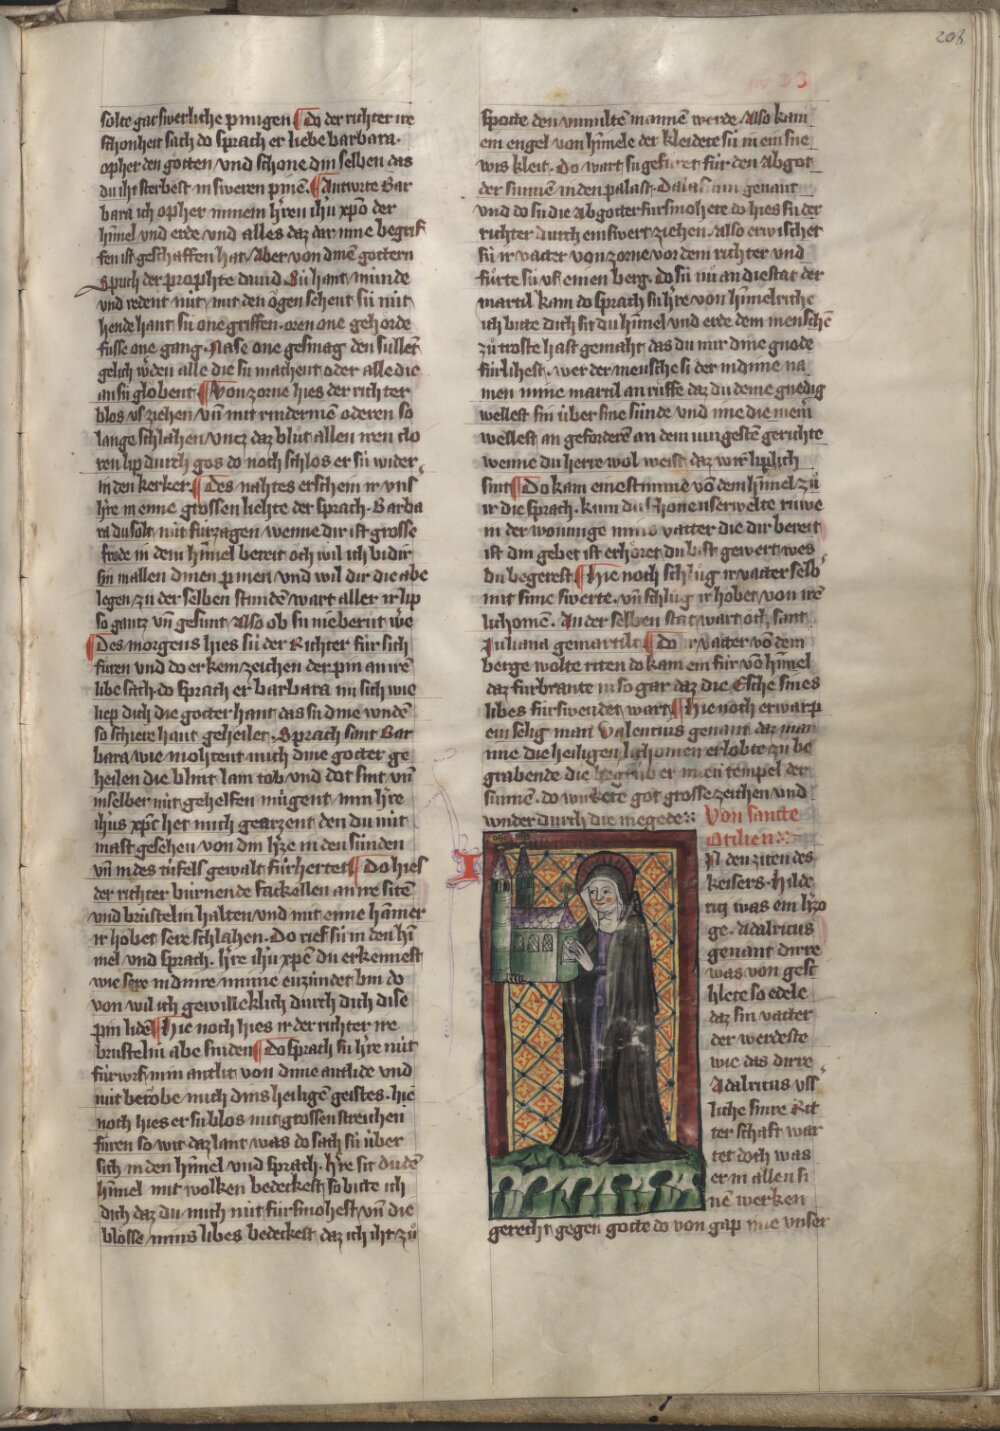 208
solte gar swerliche pinigen ¶ Do der richter ire
schonheit sach do sprach er liebe barbara·
opher den gotten vnd schone din selben das
du iht sterbest in sweren pinē· ¶ Antwrte Bar
bara ich opher minem h'ren ihū xpō der
hīmel vnd erde vnd alles daz dar inne begrif
fen ist geschaffen hat· Aber von dinē gottern
sprich der prophete dauid Sū hant mūnde
vnd redent nūt mit den ögen sehent sū nūt
hende hant sū one griffen· oren one gehorde
fusse one gang· Nase one gesmag den sūllēt
gelich wˢden alle die sū machent oder alle die
an sū globent ¶ Von zorne hies der richter
blos vs ziehen vn̄ mit rindermē oderen so
lange schlahen vncz daz blůt allen iren clo
ren lip durch gos do noch schlos er sū wider
in den kerker· ¶ Des nahtes erschein ir vns
h're in eime grossen liehte der sprach· Barba
ra du solt nūt fūrzagen wenne dir ist grosse
froͤde in dem hīmel bereit och wil ich bi dir
sin in allen dinen pinen vnd wil dir die abe
legen/ zu der selben stunde wart aller ir lip
so gantz vn̄ gesunt/ Also ob sū nie berūt we
¶ Des morgens hies sū der Richter fūr sich
fūren vnd do er kein zeichen der pin an irē
libe sach· do sprach er barbara nu sich wie
liep dich die gotter hant das sū dine wndē
so schiere hant geheilet· Sprach sant Bar
bara wie mohtent mich dine gotter ge
heilen die blint lam tob vnd dot sint vn̄
in selber nūt gehelfen mūgent/ min h're
ihūs xp̄c het mich gearzent den du nūt
maht gesehen von din h'ze in den sūnden
vn̄ in des tūfels gewalt fūrhertet ¶ Do hies
der richter būrnende fackallen an ire sitē
vnd brūstelin halten vnd mit eime hāmer
ir hobet sere schlahen· Do rief sū in den hī
mel vnd sprach· h're ihū xpē du erkennest
wie sere in dinre minne enzūndet bin do
von wil ich gewilleklich durch dich dise
pin lidē ¶ hie noch hies ir der richter ire
brūstelin abe sniden ¶ Do sprach sū h're nūt
fūrwrf min antlit von dinne antlide vnd
nūt berobe mich dins heiligē geistes· hie
noch hies er sū blos mit grossen streichen
fūren so wit daz lant was do sach sū ūber
sich in den hīmel vnd sprach· h're sit du dē
hīmel mit wolken bedeckest so bitte ich
dich daz du mich nūt fūrsmohest vn̄ die
blosse mins libes bedeckest daz ich iht zů
spotte den vnmiltē mannē werde· Also kam
ein engel von hīmele der kleidete sū in ein sne
wis kleit· Do wart sū gefūret fūr den abgot
der sunnen in den palast· genant
vnd do sū die abgotter fūrsmohete do hies sū der
richter durch ein swert ziehen/ Also erwischet
sū ir vatter von zorne vor dem richter vnd
fūrte sū vf einen berg· do sū nū an die stat der
martil kam do sprach sū h're von hīmelriche
ich bitte dich sit du hīmel vnd erde dem menschē
zů troste hast gemaht das du mir dine gnode
fūrlihest· wer der mensche si der in dinne na
men mine martil an ruͤffe daz du deme gnedig
wellest sin ūber sine sūnde vnd nie die mein
wellest an geforderē an dem iungestē gerichte
wenne du herre wol weist daz wir liplich
sint ¶ Do kam eine stimme võ dem hīmel zů
ir die sprach· kum du schone userwelte ruwe
in der wonunge mins vatter die dir bereit
ist din gebet ist erhoͤret du bist gewert wes
du begerest ¶ Hie noch schlůg ir vatter selb'
mit sime swerte· vn̄ schlůg ir hobet von irē
lichomē· An der selben stat wart och sant
Juliana gemartilt ¶ Do ir vatter võ dem
berge wolte riten do kam ein fūr võ hīmel
daz fūrbrante in so gar daz die Esche sines
libes fūrswendet wart ¶ hie noch erwarp
ein selig man Valentius genant daz man
ime die heiligen lichomen erlobte zu be
grabende die begrůb er in eū tempel der
sunnē· do wirkete got grosse zeichen vnd
wnder durch die megede
Von sancte
Otilien
In den ziten des
keisers· hilde
rig was ein h'zo
ge· Adalricus
genant dirre
was von gesc
hlete so edele
daz sin vatter
der werdeste
wie das dirre
Adalricus vss
liche sinre Rit
ter schaft war
tet doch was
er in allen si
nē werken
gerecht gegen gotte do von gap ime vnser